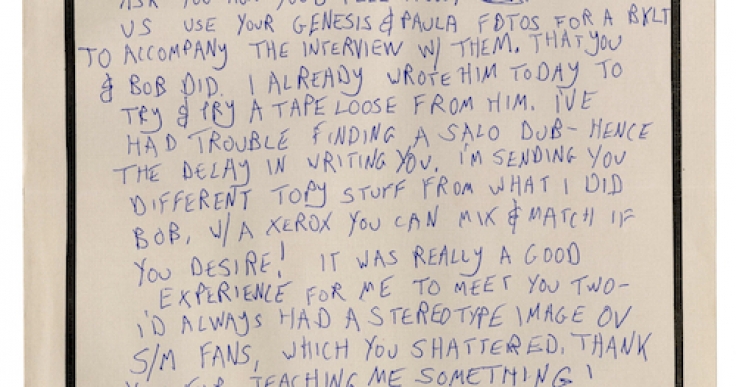 US USE YOUR GENESIS & PAULA FOTOS FOR A BKLT
TO ACCOMPANY THE INTERVIEW W/ THEM, THAT YOU
& BOB DID. I ALREADY WROTE HIM TODAY TO
TRY & PRY A TAPE LOOSE FROM HIM. I'VE
HAD TROUBLE FINDING A SALO DUB- HENCE
THE DELAY IN WRITING YOU. I'M SENDING YOU
DIFFERENT TOPY STUFF FROM WHAT I DID
BOB, W/A XEROX YOU CAN MIX & MATCH IF
YOU DESIRE! IT WAS REALLY A GOOD
EXPERIENCE FOR ME TO MEET YOU TWO-
I'D ALWAYS HAD A STEREOTYPE IMAGE OV
S/M FANS, WHICH YOU SHATTERED. THANK
TEACHING ME SOMETHING!